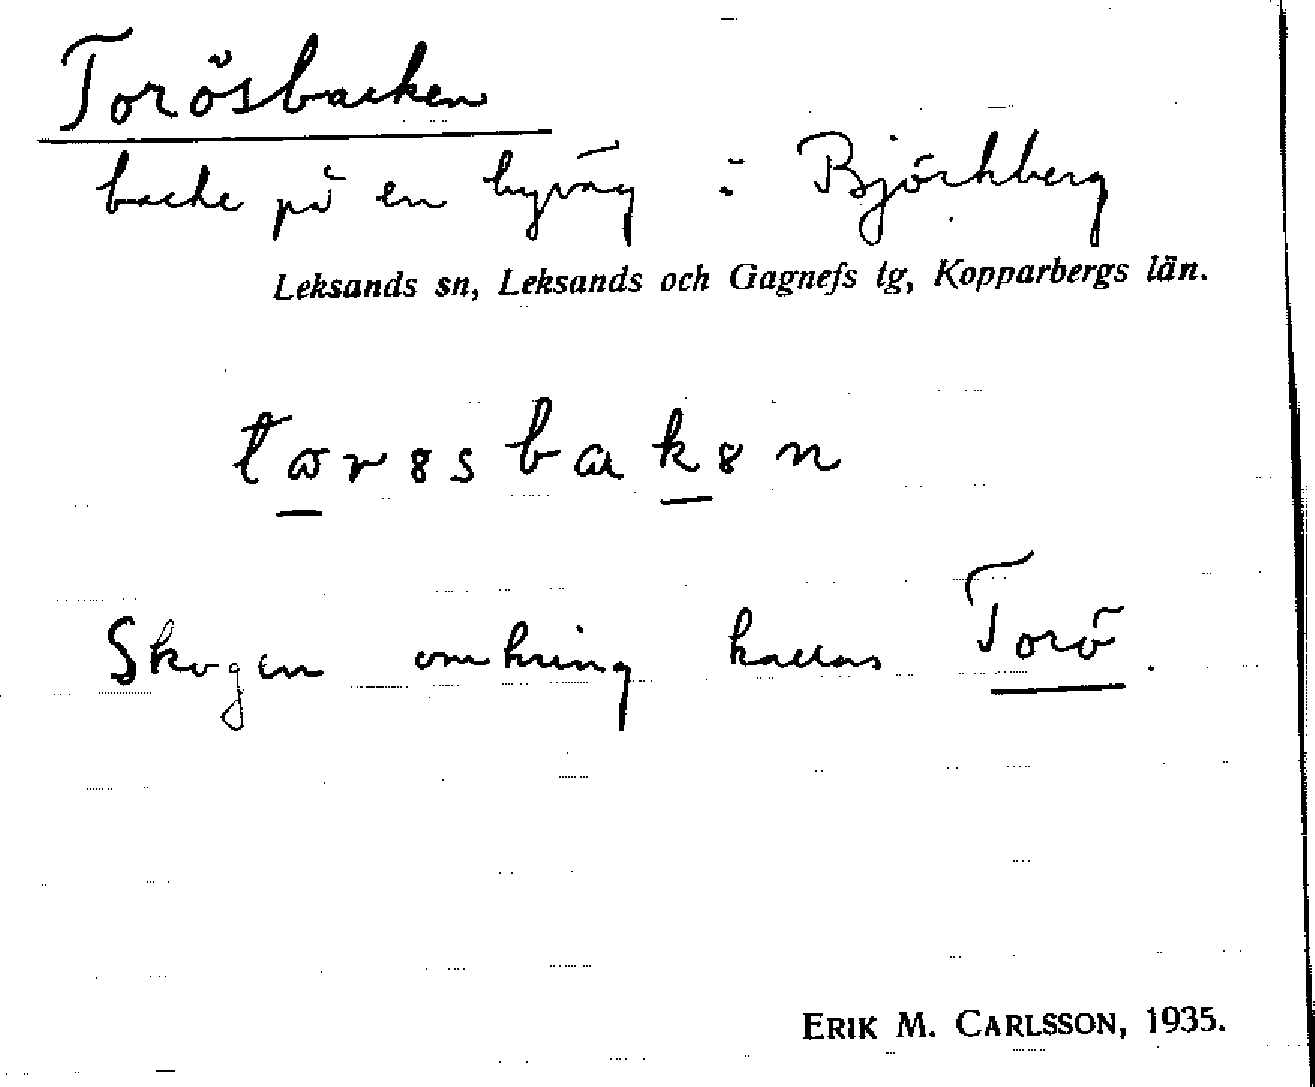 Torösbacken
backe på en byväg i Björkberg
Leksands sn, Leksands och Gagnefs tg, Kopparbergs län.
tɷrɞsbakɞn
Skogen omkring kallas Torö.
ERIK M. CARLSSON, 1935.